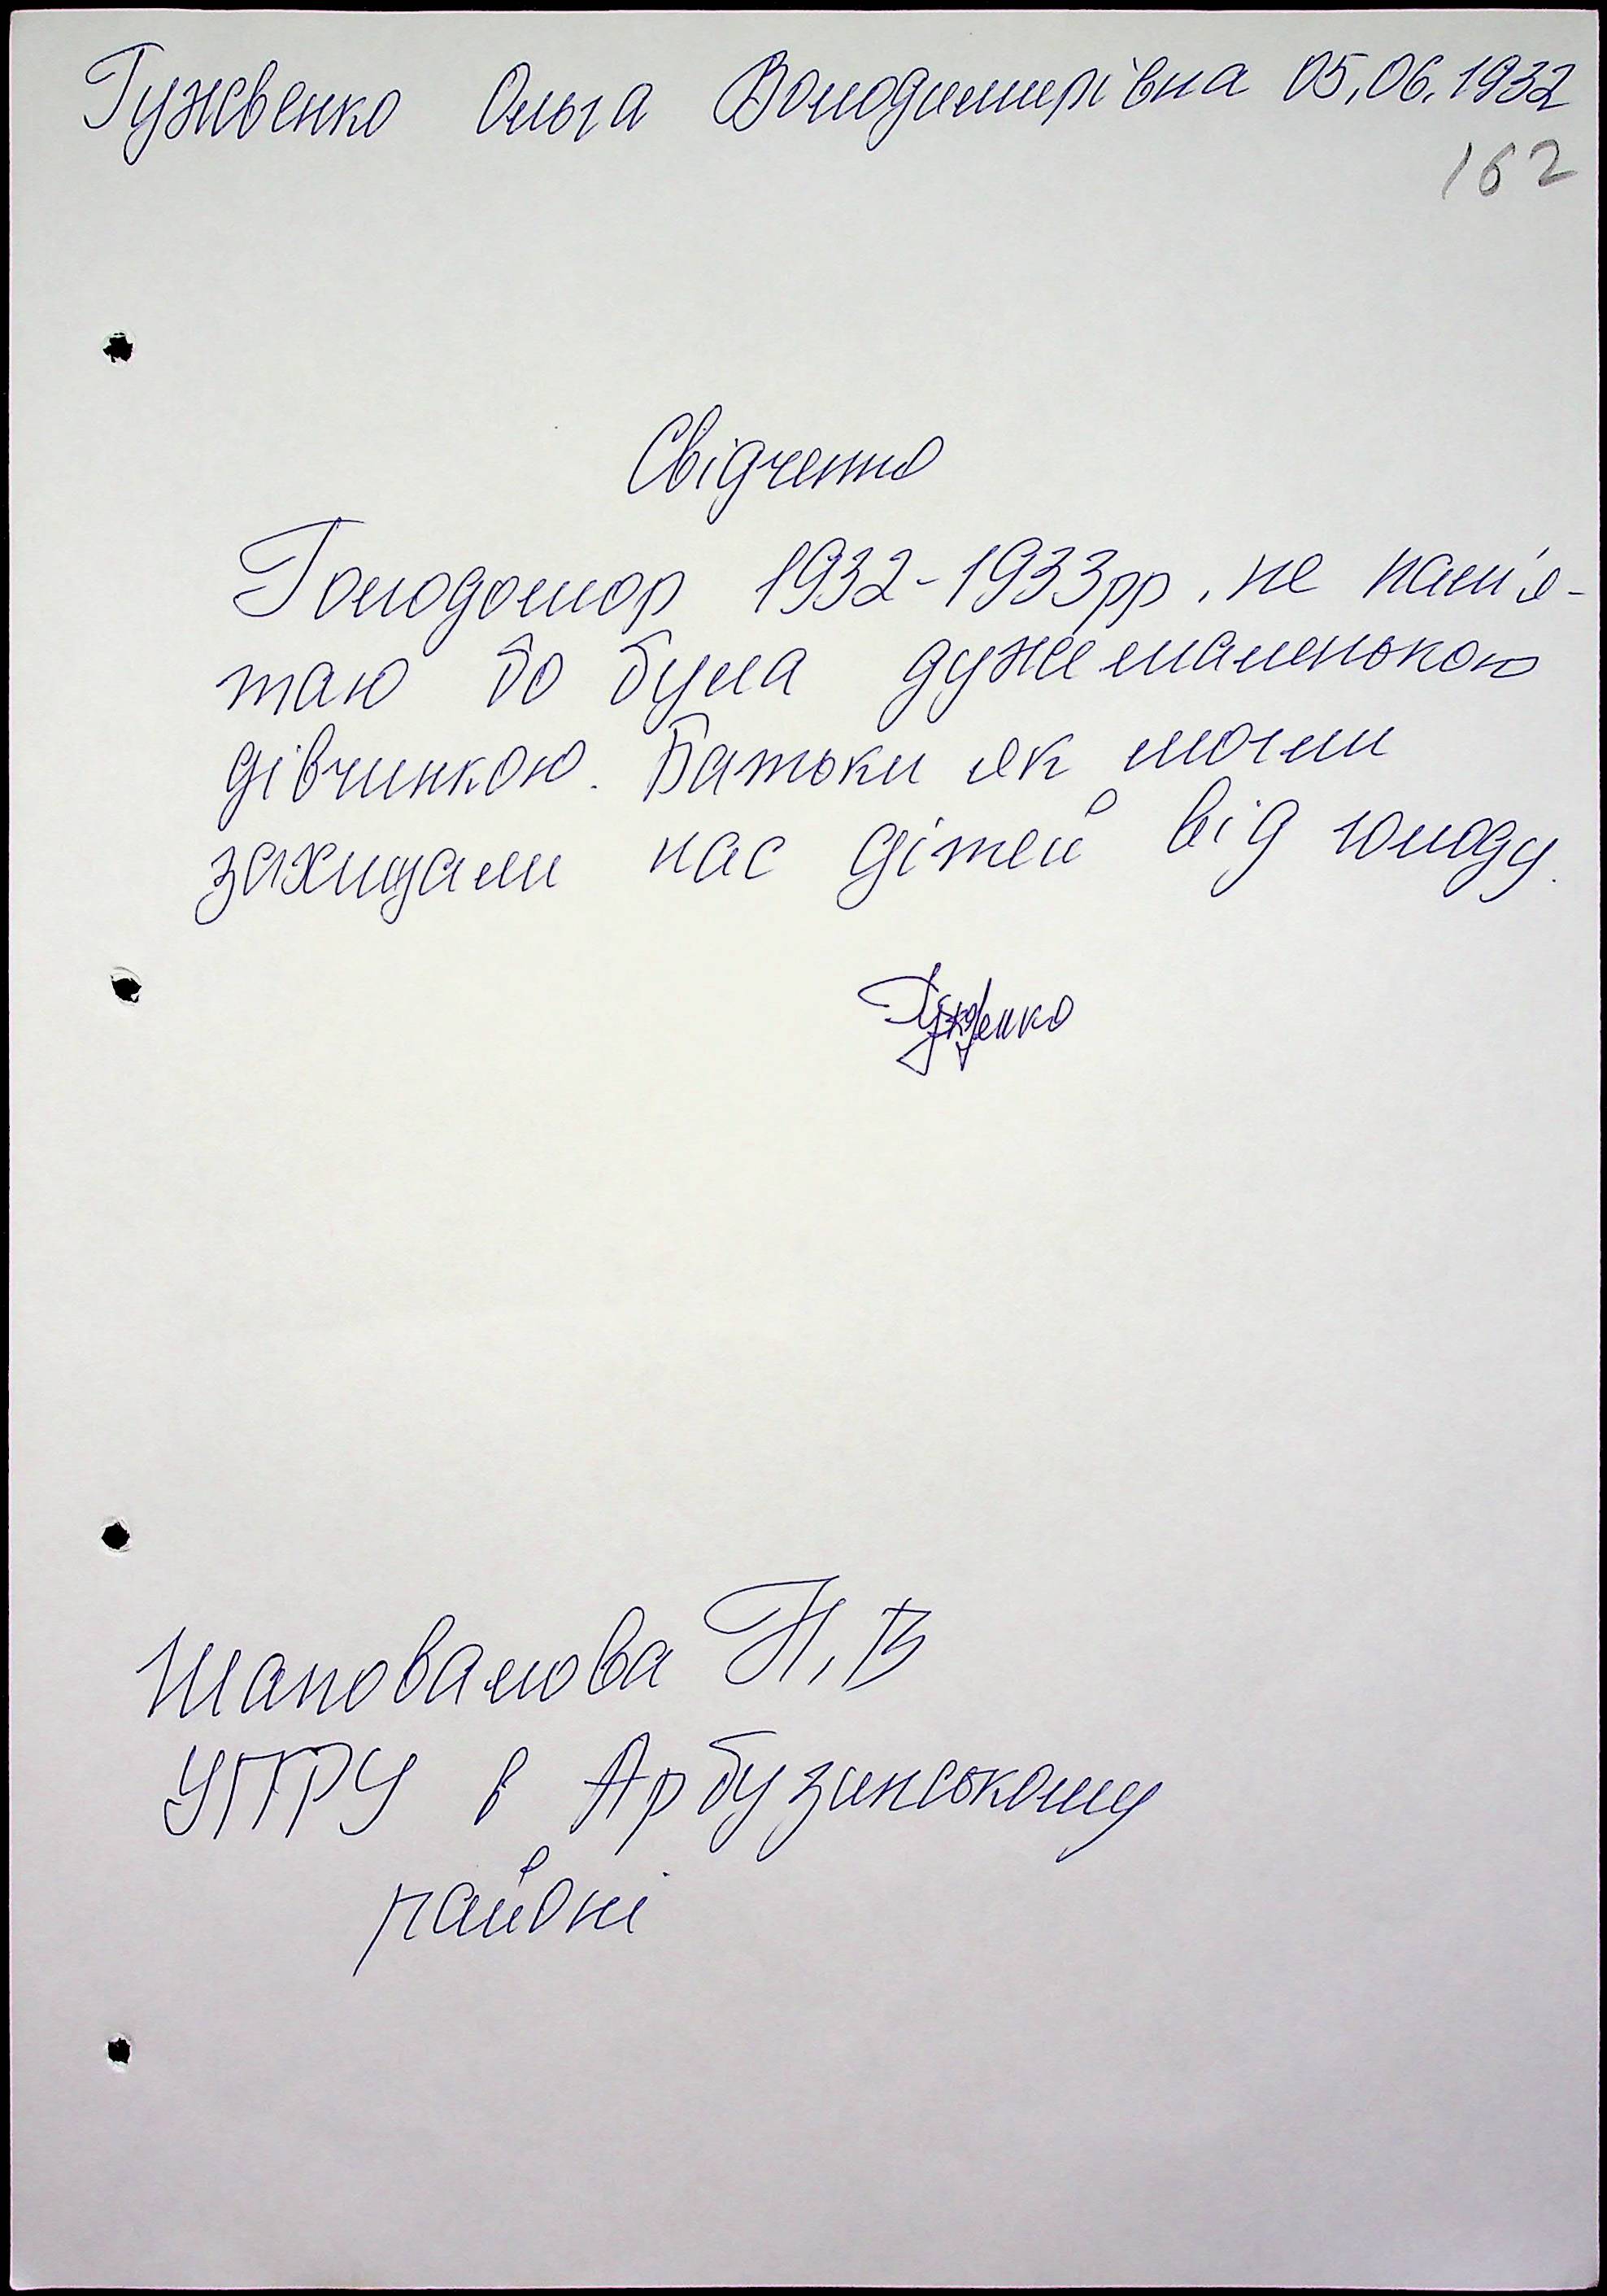 Гужвенко Ольга Володимирівна 05.06.1932
162
Свідчення
Голодомор 1932-1933рр. не пам'я-
таю бо була дуже маленькою
дівчинкою. Батьки як могли
захищали нас дітей від голоду.
Гужвенко
Шаповалова Н.В
УПРУ в Арбузинському
районі